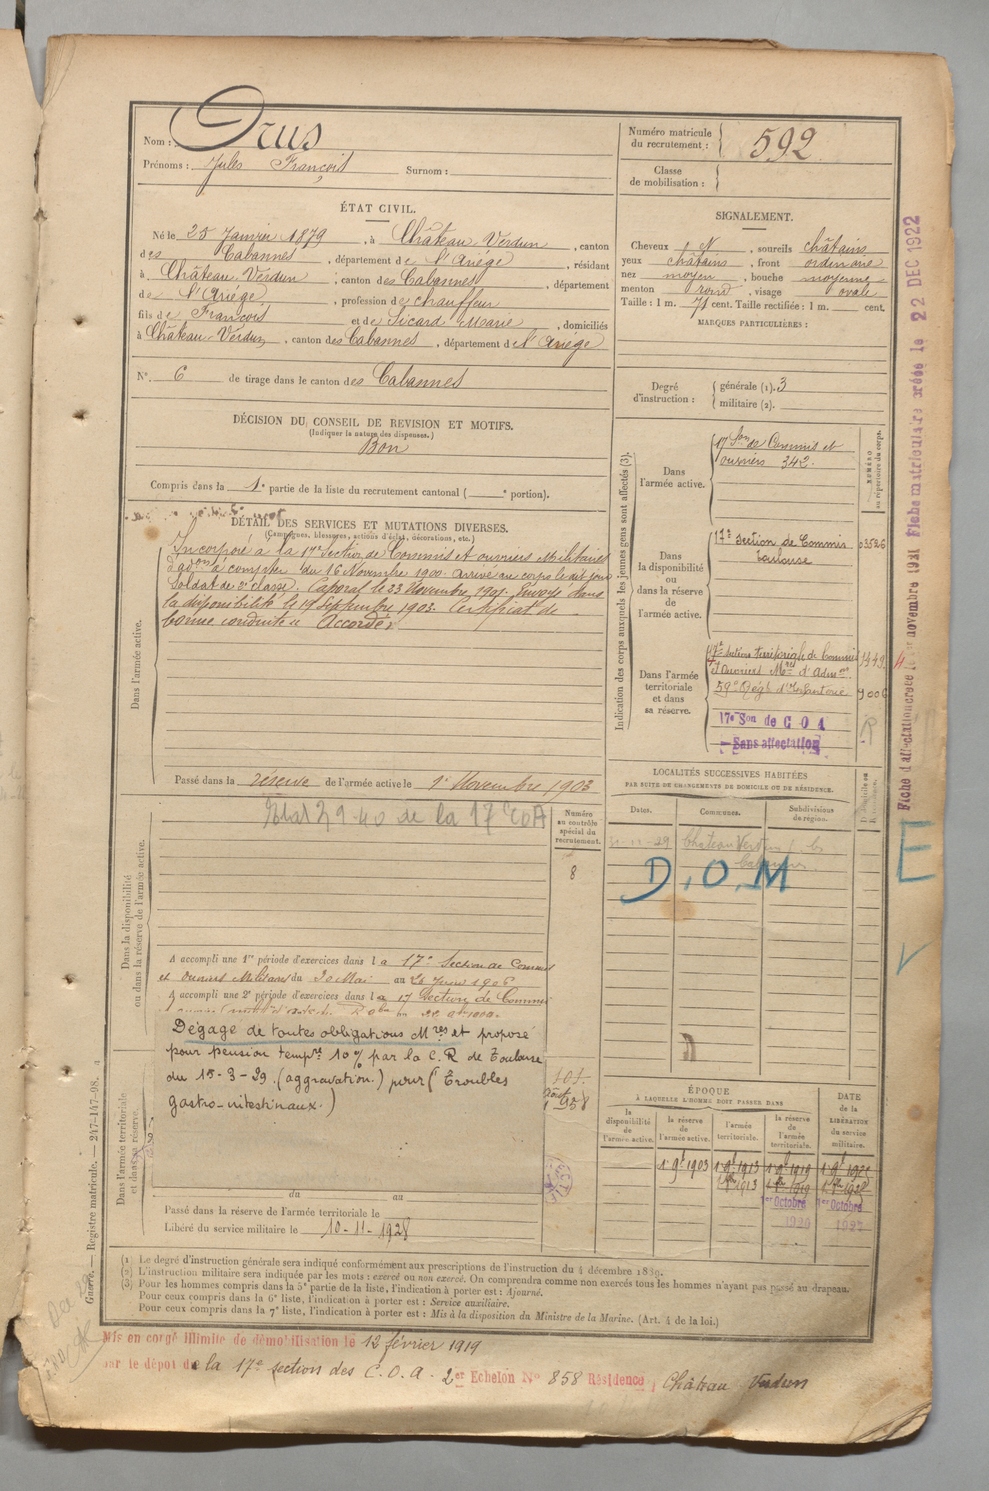 Nom : Orus
Prénoms : Jules François Surnom :
Numéro matricule du recrutement : 592
Classe de mobilisation :
ÉTAT CIVIL.
Né le 25 Janvier 1879, à Château Verdun, canton
des Cabannes, département de l'Ariége, résidant
à Château Verdun, canton des Cabannes, département
de l'Ariége, profession de chauffeur
fils de François et de Sicard Marie, domiciliés
à Château-Verdun, canton des Cabannes, département de l'Ariége
N°. 6 de tirage dans le canton des Cabannes
SIGNALEMENT.
Cheveux N, sourcils châtains
yeux châtains, front ordinaire
nez moyen, bouche moyenne
menton rond, visage ovale
Taille : 1 m. 71 cent. Taille rectifiée : 1 m. cent.
MARQUES PARTICULIÈRES :
Degré d'instruction : générale (1). 3
militaire (2).
DÉCISION DU CONSEIL DE REVISION ET MOTIFS.
(Indiquer la nature des dispenses.)
Bon
Compris dans la 1e partie de la liste du recrutement cantonal ( e portion).
DÉTAIL DES SERVICES ET MUTATIONS DIVERSES.
(Campagnes, blessures, actions d'éclat, décorations, etc.)
Dans l'armée active.
Incorporé à la 17e Section de Commis et ouvriers Militaires
d'adon à compter du 16 Novembre 1900. Arrivé au corps le dit jour
Soldat de 2e classe. Caporal le 23 Novembre 1901. Envoyé dans
la disponibilité le 19 Septembre 1903. Certificat de
bonne conduite « Accordé »
Passé dans la réserve de l'armée active le 1er Novembre 1903
Indication des corps auxquels les jeunes gens sont affectés (3).
NUMÉRO au répertoire du corps.
Dans l'armée active.
17e Son de Commis et
ouvriers 342.
Dans la disponibilité ou dans la réserve de l'armée active.
17e Section de Commis 03526
Toulouse
Dans l'armée territoriale et dans sa réserve.
17e section territoriale de Commis
et Ouvriers Mres d'Admon
59e Régt d'Infanterie
17e Son de C O A
Sans affectation
Fiche d'affectation créée le novembre 1921 Fiche matriculaire créée le 22 DEC 1922
LOCALITÉS SUCCESSIVES HABITÉES
PAR SUITE DE CHANGEMENTS DE DOMICILE OU DE RÉSIDENCE.
Dates. Communes. Subdivisions de région. Domicile ou Résidence.
Chateau Verdun
D.O.M
E
Dans la disponibilité ou dans la réserve de l'armée active.
Etat 29-40 de la 17e COA
Numéro au contrôle spécial du recrutement.
8
A accompli une 1re période d'exercices dans la 17e Section de Commis
et Ouvriers Militaires du 30 Mai au 26 Juin 1906
A accompli une 2e période d'exercices dans la 17 Section de Commis
Dégagé de toutes obligations Mres et proposé
pour pension tempre 10% par la C.R de Toulouse
du 15-3-29. (aggravation.) pour (Troubles
gastro-intestinaux.)
Dans l'armée territoriale et dans sa réserve.
du au
Passé dans la réserve de l'armée territoriale le
Libéré du service militaire le 10-11-1928
ÉPOQUE
À LAQUELLE L'HOMME DOIT PASSER DANS
DATE de la LIBÉRATION du service militaire.
la disponibilité de l'armée active. la réserve de l'armée active. l'armée territoriale. la réserve de l'armée territoriale.
1 9bre 1903 1 9bre 1913 1 9bre 1919
1er Octobre 1er Octobre
(1) Le degré d'instruction générale sera indiqué conformément aux prescriptions de l'instruction du 4 décembre 1889.
(2) L'instruction militaire sera indiquée par les mots : exercé ou non exercé. On comprendra comme non exercés tous les hommes n'ayant pas passé au drapeau.
(3) Pour les hommes compris dans la 5e partie de la liste, l'indication à porter est : Ajourné.
Pour ceux compris dans la 6e liste, l'indication à porter est : Service auxiliaire.
Pour ceux compris dans la 7e liste, l'indication à porter est : Mis à la disposition du Ministre de la Marine. (Art. 4 de la loi.)
Guerre. — Registre matricule. — 247-147-98.
Mis en congé illimité de démobilisation le 12 février 1919
par le dépôt de la 17e section des C.O.A. 2er Echelon N° 858 Résidence Château Verdun